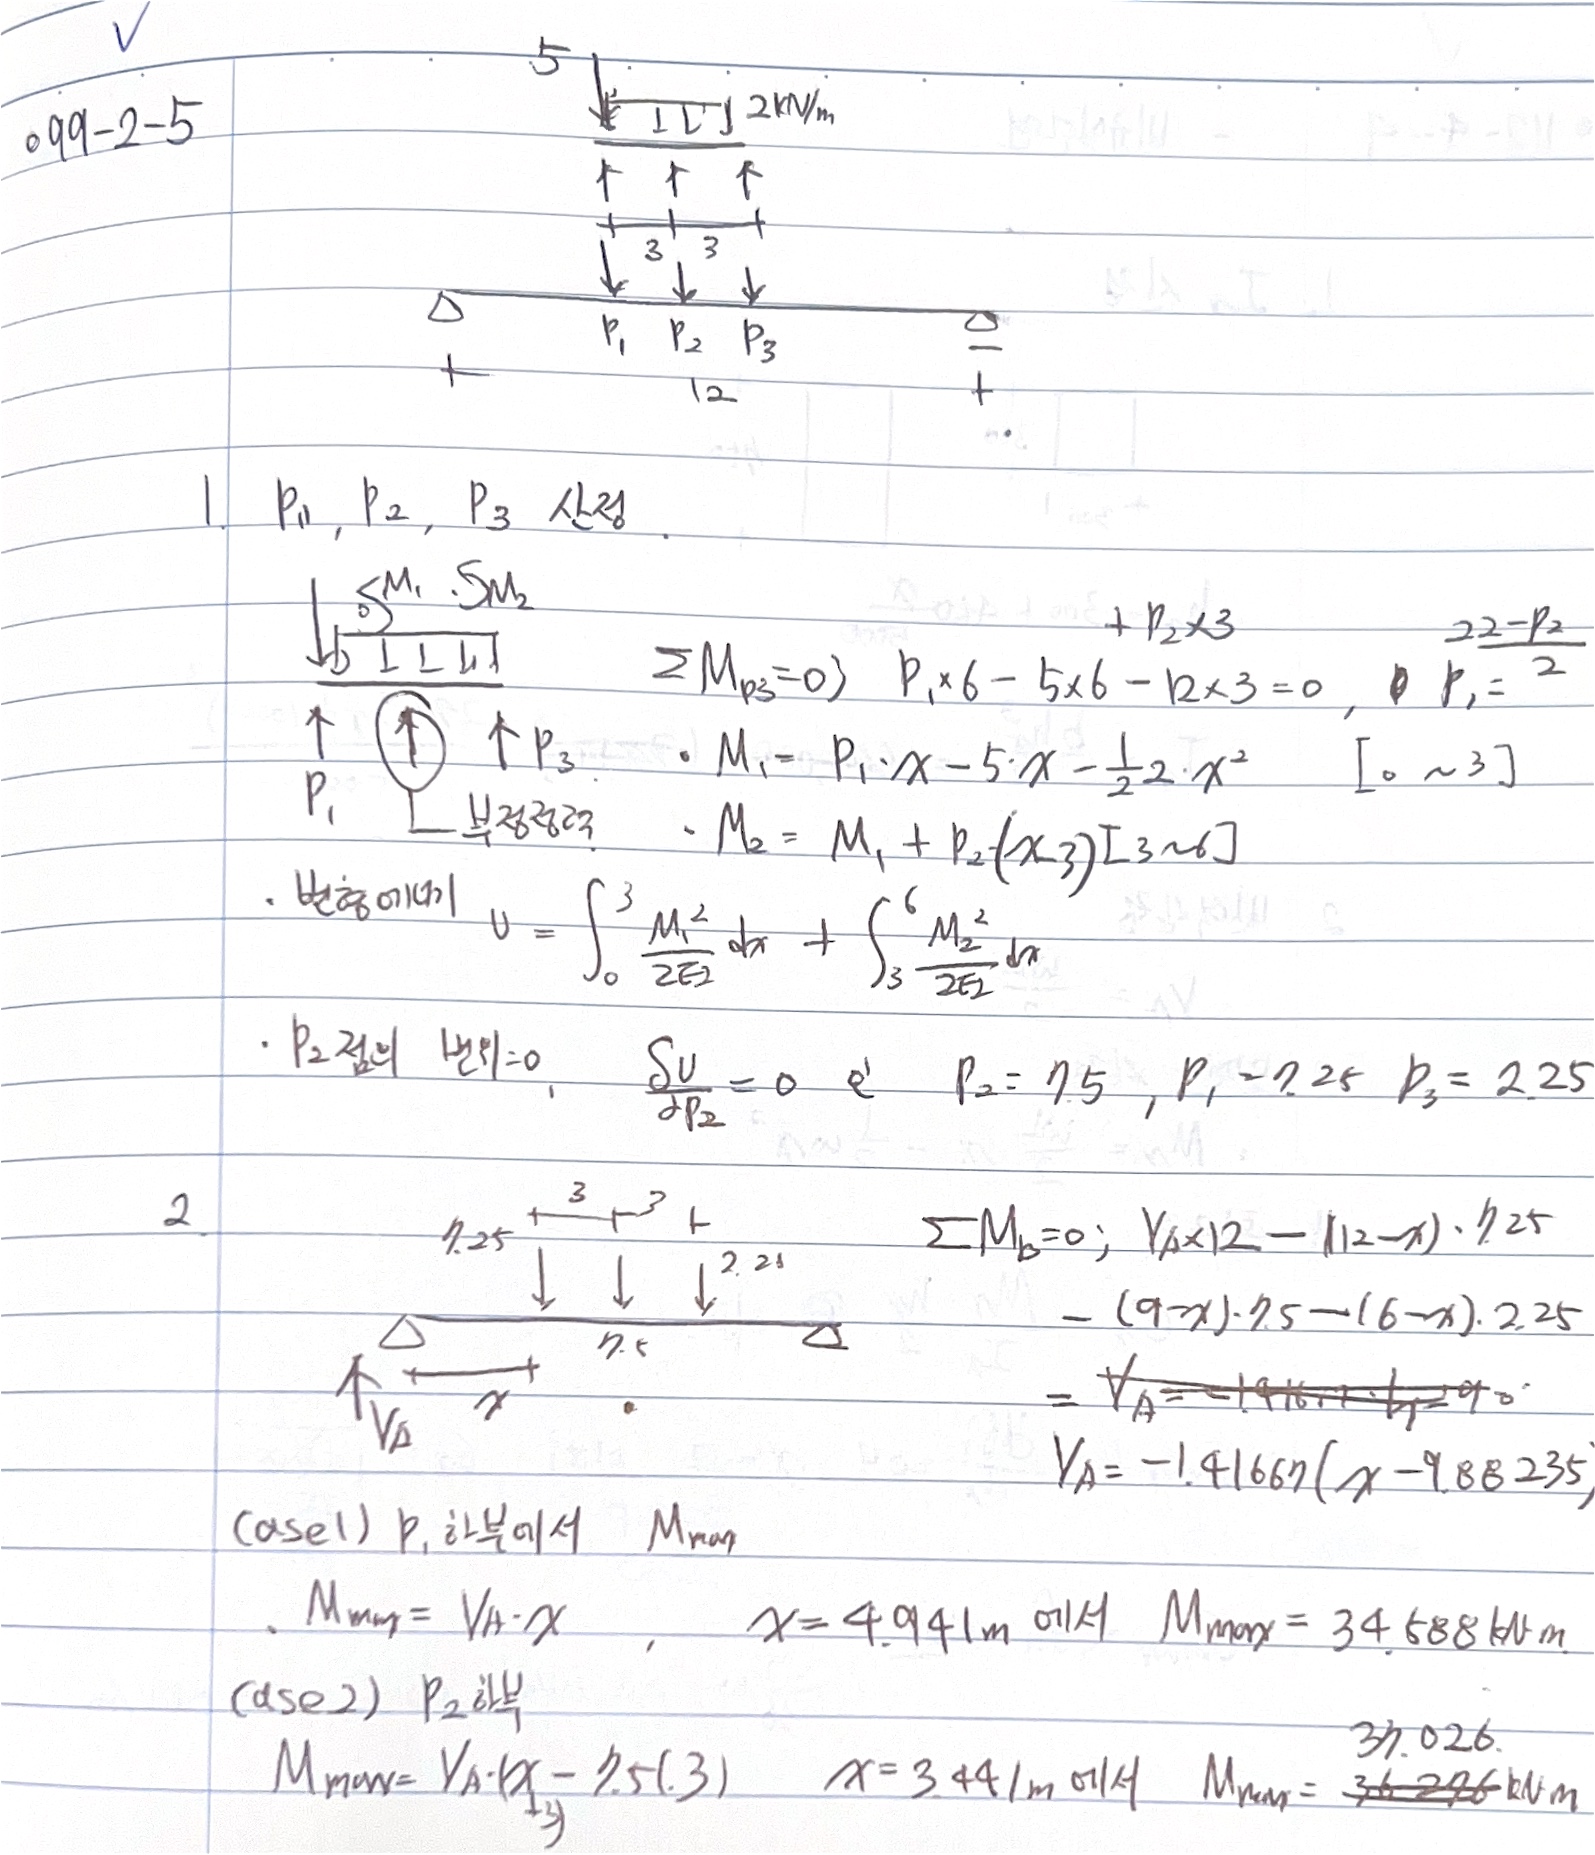 099-2-5
5
2kN/m
3 3
P₁ P₂ P₃
12
1. P₁, P₂, P₃ 산정
M₁ M₂
P₁ P₃
부정정력
+ P₂×3
ΣM_P3=0) P₁×6 - 5×6 - 12×3 = 0, P₁ = (22-P₂)/2
· M₁ = P₁·x - 5·x - ½2·x² [0 ~3]
· M₂ = M₁ + P₂(x-3) [3~6]
· 변형에너지 U = ∫₀³ M₁²/2EI dx + ∫₃⁶ M₂²/2EI dx
· P₂점의 변위=0, δU/∂P₂ = 0 P₂ = 7.5, P₁ = 7.25 P₃ = 2.25
2
3 3
7.25 2.25
7.5
x
V_A
ΣM_b=0; V_A×12 - (12-x)·7.25
- (9-x)·7.5 - (6-x)·2.25
=
V_A = -1.41667(x-9.88235)
(case1) P₁ 하부에서 Mmax
· Mmax = V_A·x, x = 4.941m 에서 Mmax = 34.588kN·m
(case2) P₂ 하부
Mmax = V_A·(x+3) - 7.5(.3) x = 3.441m 에서 Mmax = 37.026 kN·m